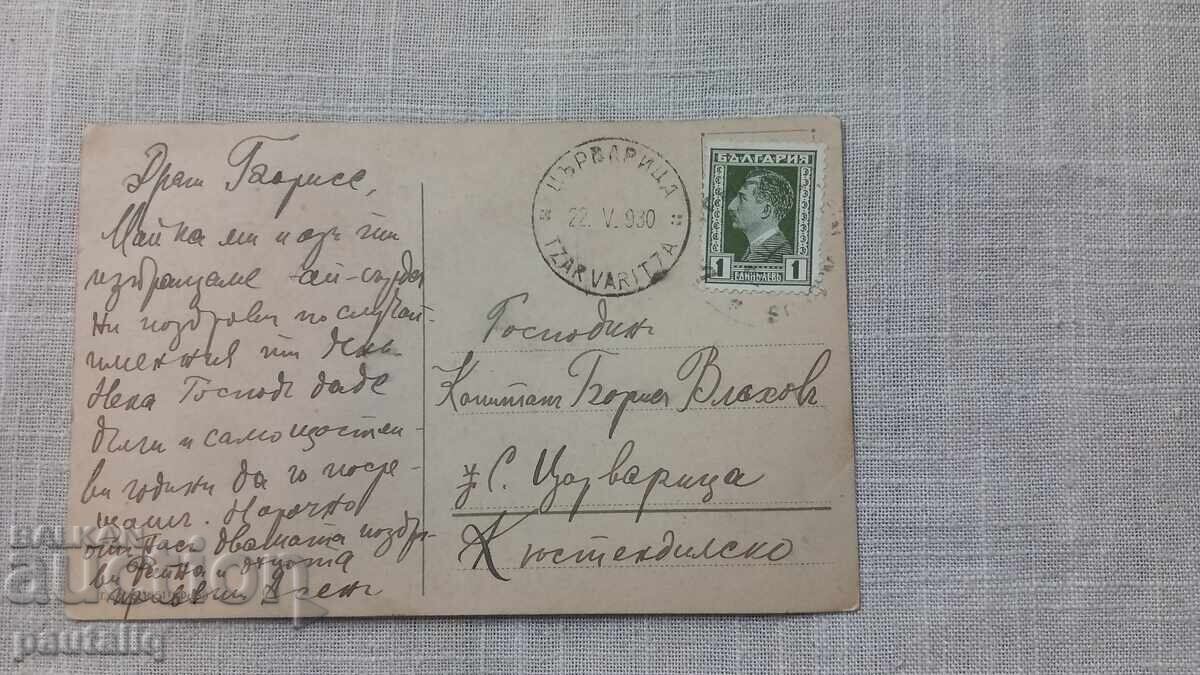 Драг Борисе,
Майка ми и азъ ти
изпращаме най-сърдеч
ни поздрави по случай
имения ти день.
Нека Господь даде
дълги и само щастли-
ви години да го посре-
щашъ. Нарочно
отъ насъ двамата поздра-
ви и децата
Асенъ
ЦЪРВАРИЦА
22. V. 930
TZARVARITZA
БЪЛГАРИЯ
1 ЕДИНЪ ЛЕВЪ 1
Господинъ
Капитанъ Борисъ Влаховъ
у С. Църварица
Кюстендилско
BALKAN
auction
pautaliq